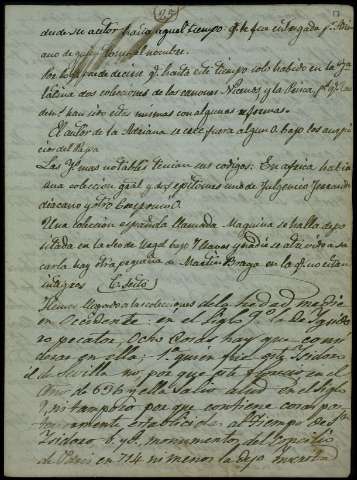 desde su autor hasta aquel tiempo qe le fue entregada
ano de qe tomo el nombre.
Por lo qe puede decirse qe hasta este tiempo solo habido en la Yga
latina dos colecciones de los canones Nicenos y la
demas han sido estas mismas con algunas reformas.
El autor de la Adriana se cree fuera alguno bajo los auspi
cios del Papa
Las Ygas mas notables tenian sus codigos: En africa habia
una coleccion gral y dos epitomes uno de Fulgencio Ferrando
diacano y otro Cresconio.
Una coleccion española llamada Maquina se halla depo
sitada en la Seo de Urgel bajo 7 llaves y nadie se atrevido a sa
carla hay otra pequeña de Martin Braga en la qe no estan
(Testo)
Hemos llegado a las colecciones de la hedad media
en Occidente: en el Siglo 9o la de Ysido
ro pecator. Ocho cosas hay que consi
derar en ella; 1a quien fue, qe Isidoro
de Sevilla no, por que este fallecio en el
Año de 636 y ella salio en el Siglo
9, ni tampoco por que contiene cosas pos
teriormente establecidas al tiempo de Sn
Ysidoro v. g. monumentos del Concilio
de Paris en 714 ni menos la dejo